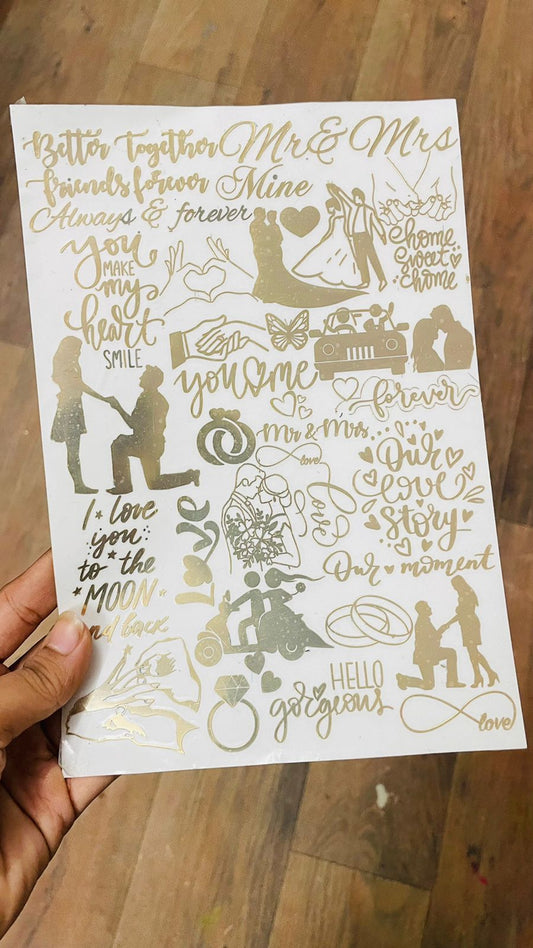 Better Together
Mr & Mrs
friends forever
Mine
Always & forever
home
sweet
home
you
MAKE
my
heart
SMILE
you me
forever
Mr & Mrs
love
Love
Our
Love
Story
I love
you
to the
MOON
and back
Love
Our moment
HELLO
gorgeous
love